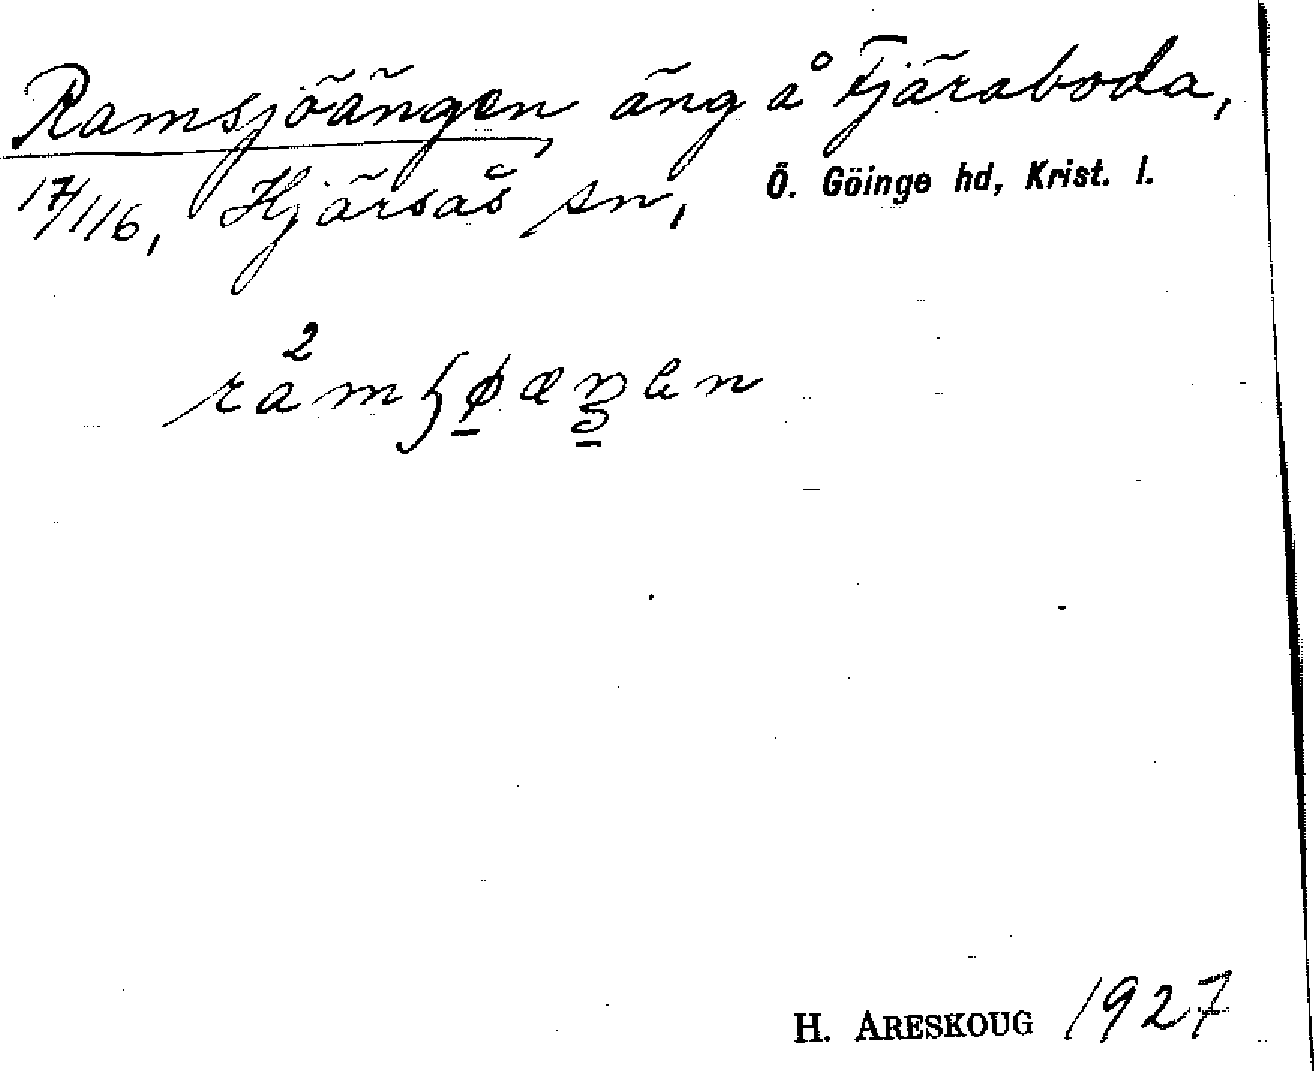 Ramsjöängen, äng å Fjäraboda,
17/116, Hjärsås sn, Ö. Göinge hd, Krist. l.
H. ARESKOUG 1927